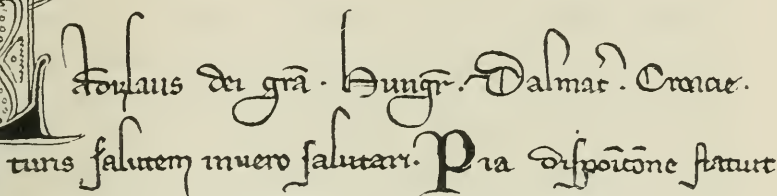 Ladizlaus dei gr̄a · Hungr̄ · Dalmat̄ · Croacie ·
turis ſalutem inuero ſalutari · Pia diſpoſicōne ſtatuit